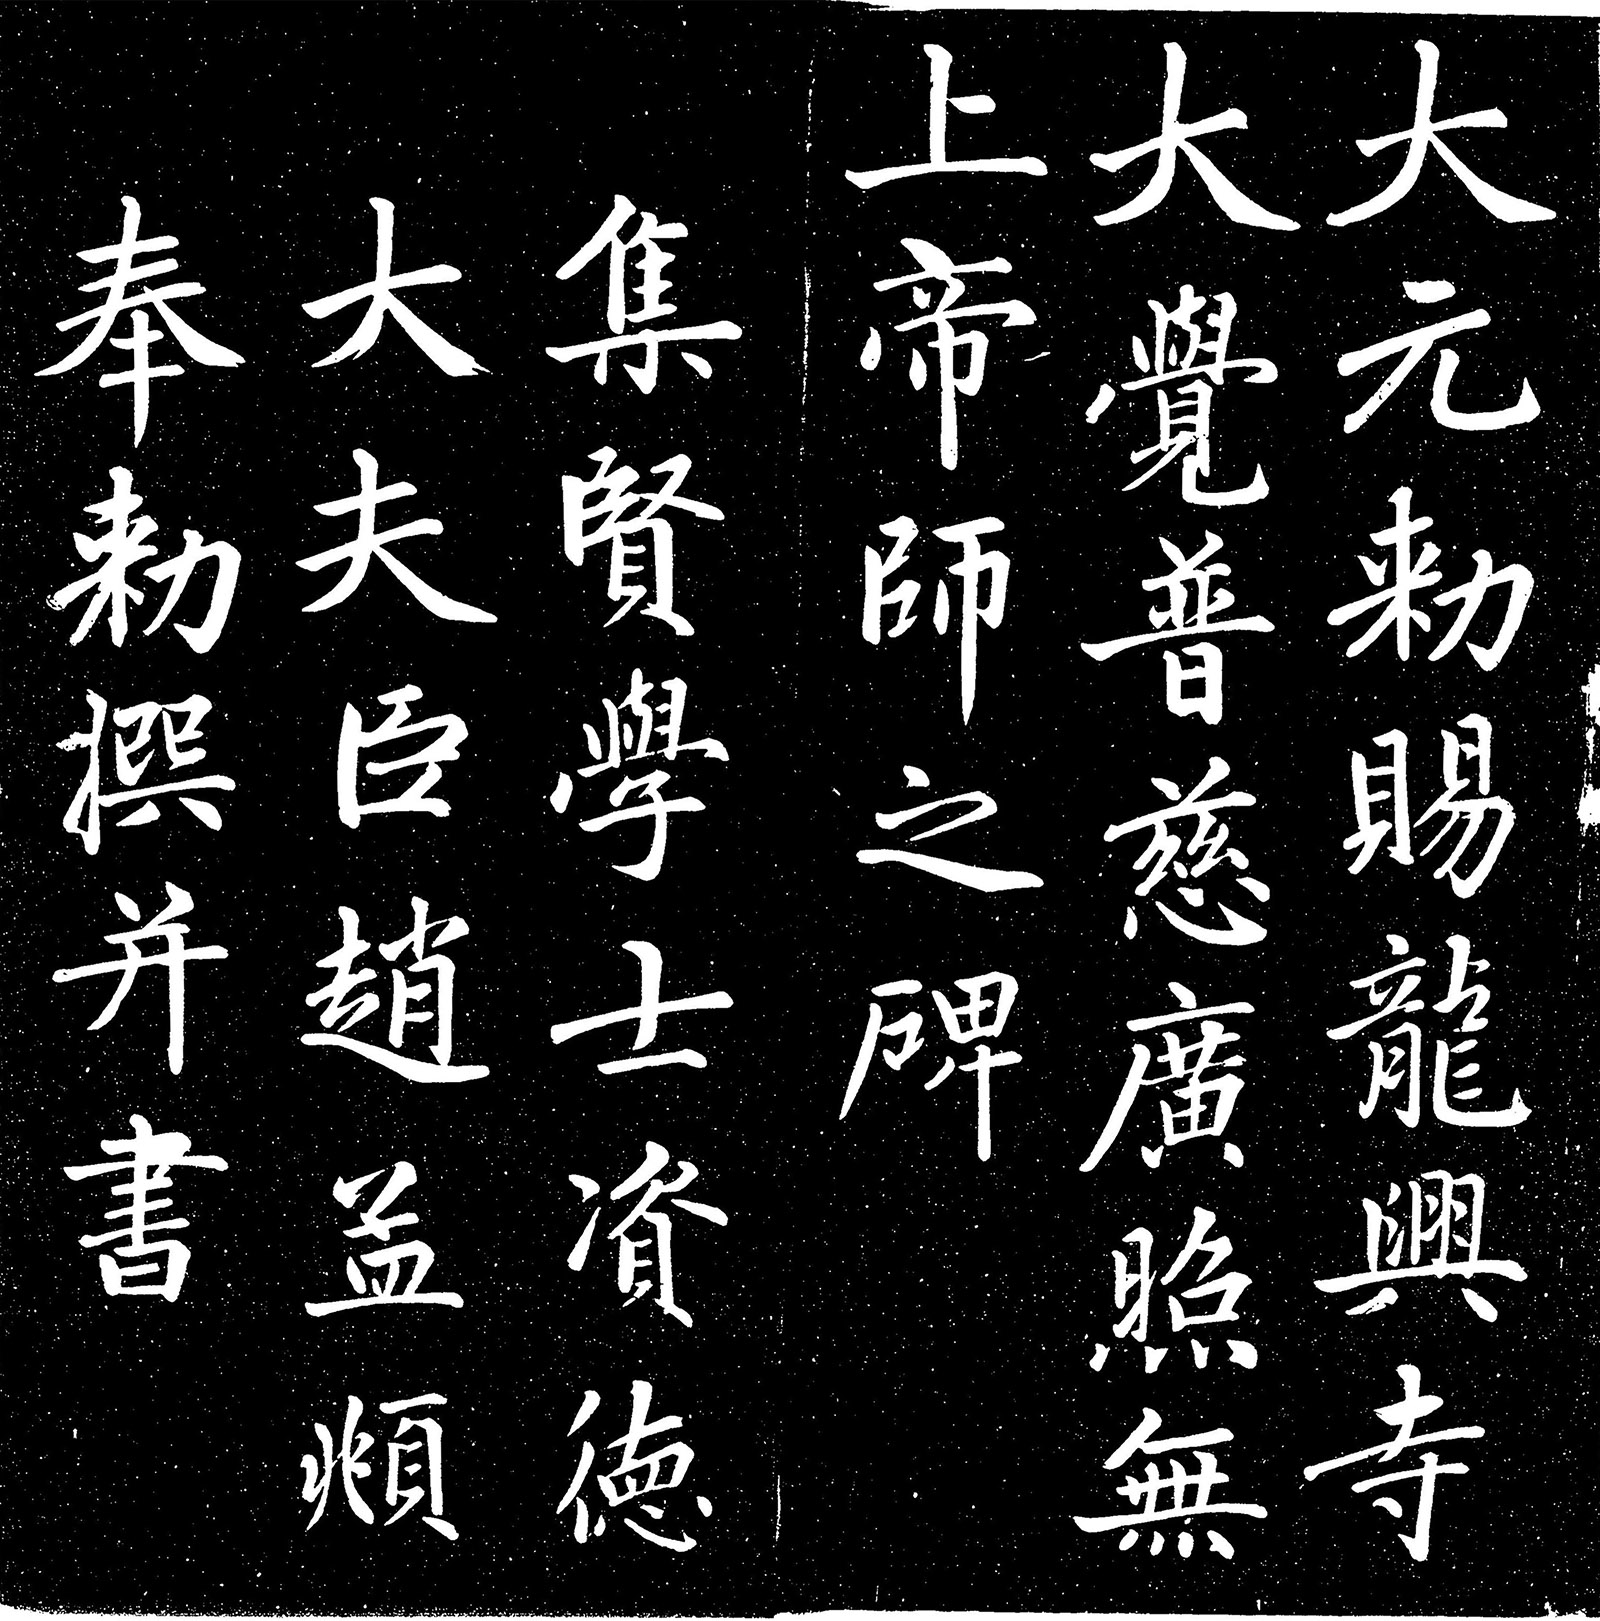 大元勑賜龍興寺
大覺普慈廣照無
上帝師之碑
集賢學士資德
大夫臣趙孟頫
奉勑撰并書